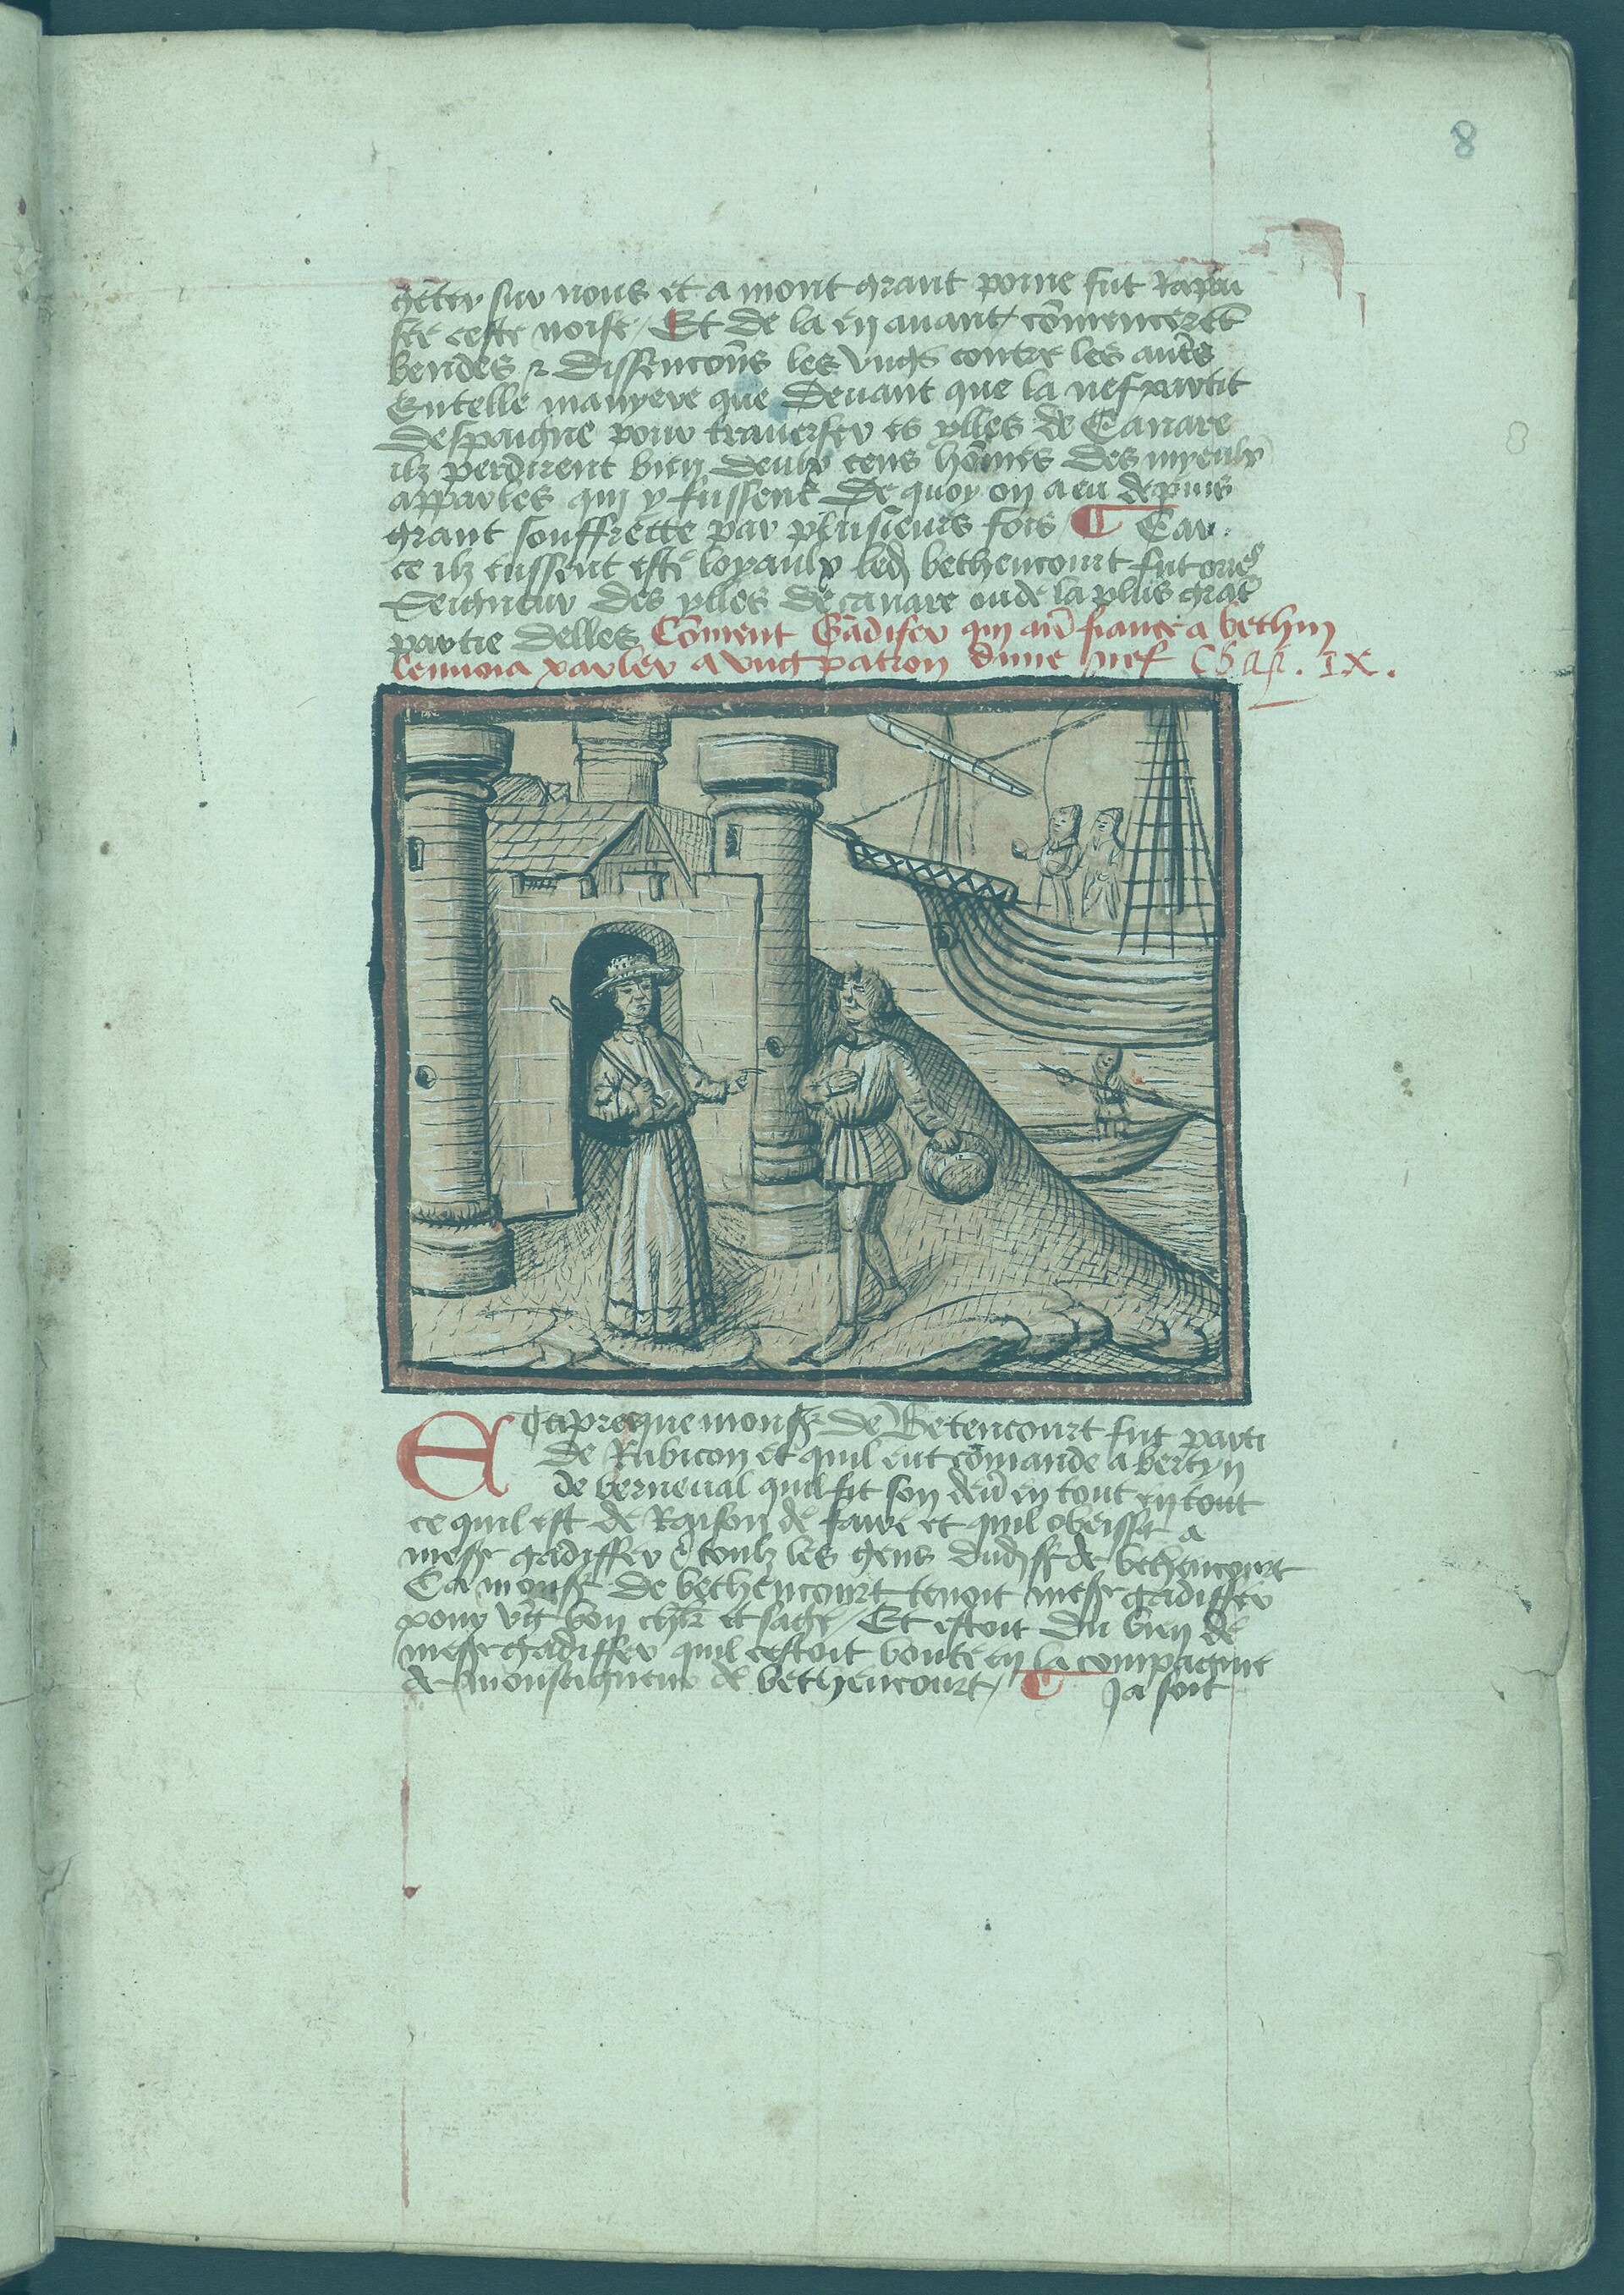 8
getter sur nous et a mont grant poine fut Rapai
sée ceste noise / Et de la en auant cōmencerēt
bendes & dissencoñs les vngs contre les aut̃s
En telle manyere que Deuant que la nef partit
despaigne pour trauerser es ylles de Canare
ilz perdirent bien deulx cens hōmes des myeulx
apparles qui y fussent De quoy on a eu depuis
grant souffrette par plusieurs fois ¶ Car
ce ilz eussent esté loyaulx led bethencourt fut ores
Seigneur des ylles de canare ou de la plus grāt
partie delles Cōment Gadifer qui aũ fiance a bethin
lenuoia parler a vng patron dune nef Chap. IX.
Et apres que monsr̃ de Betencourt fut parti
de Rubicon et quil eut cōmande a bertyn
de berneual quil fit son deũ en tout en tout
ce quil est de Raison de faire et quil obeisst a
messr̃ gadiffer & toulz les gens dud sr̃ de bethencourt
Car monsr̃ de bethencourt tenoit messr̃ gadiffer
pour vng bon chlr̃ et sage / Et estoit du bien de
messr̃ gadiffer quil cestoit boute en la compagnie
de monseigneur de bethencourt / ¶ Ja soit